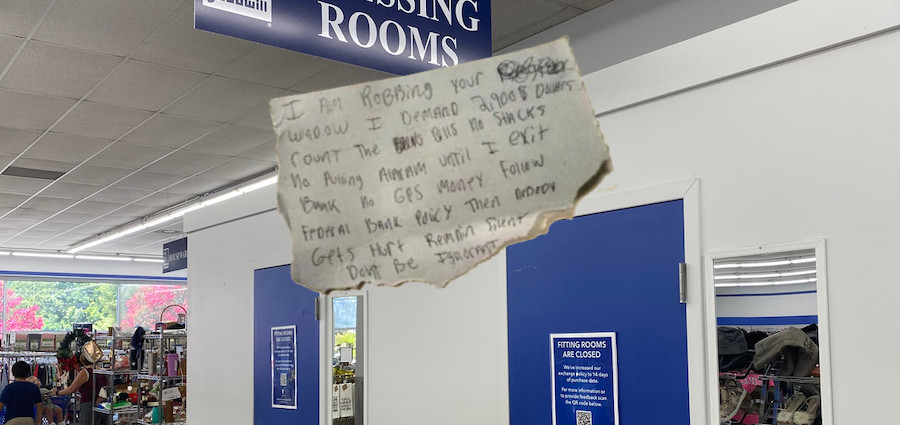 goodwill®
DRESSING
ROOMS
I AM RoBBing your
WINDOW I DEMAND 2,900$ Dollers
count The Bills NO STACKS
No Pulling Alaram until I exit
Bank No GPS Money Follow
Federal Bank Policy Then NoBoDY
Gets Hurt Remain Silent
Dont Be Ignorant
HOUSEWARES
FITTING ROOMS
ARE CLOSED
FITTING ROOMS
ARE CLOSED
We've increased our
exchange policy to 14-days
of purchase date.
For more information or
to provide feedback scan
the QR code below.